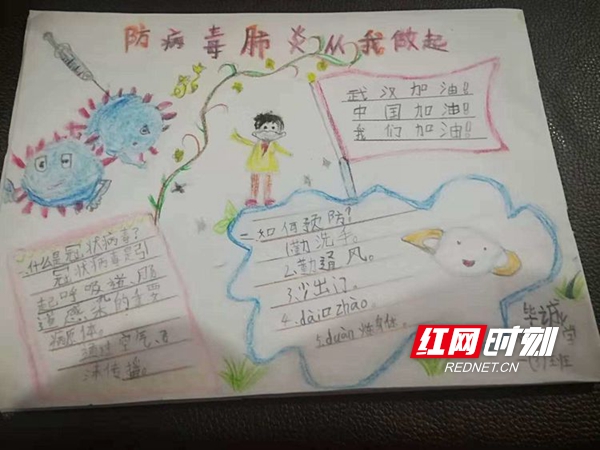 防病毒肺炎从我做起
武汉加油!!
中国加油!!
我们加油!!
一.如何预防?
1勤洗手。
2.勤通风。
3.少出门。
4.dài口zhào。
5.duàn
什么是冠状病毒?
冠状病毒是引
起呼吸道
道感染的主要
病原体。
通过空气、
沫传播。
红网时刻
REDNET.CN